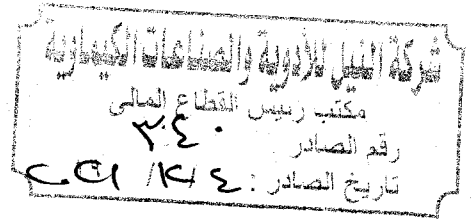 شركة النيل للأدوية والصناعات الكيماوية
مكتب رئيس القطاع المالى
رقم الصادر ٣٤٠
تاريخ الصادر :